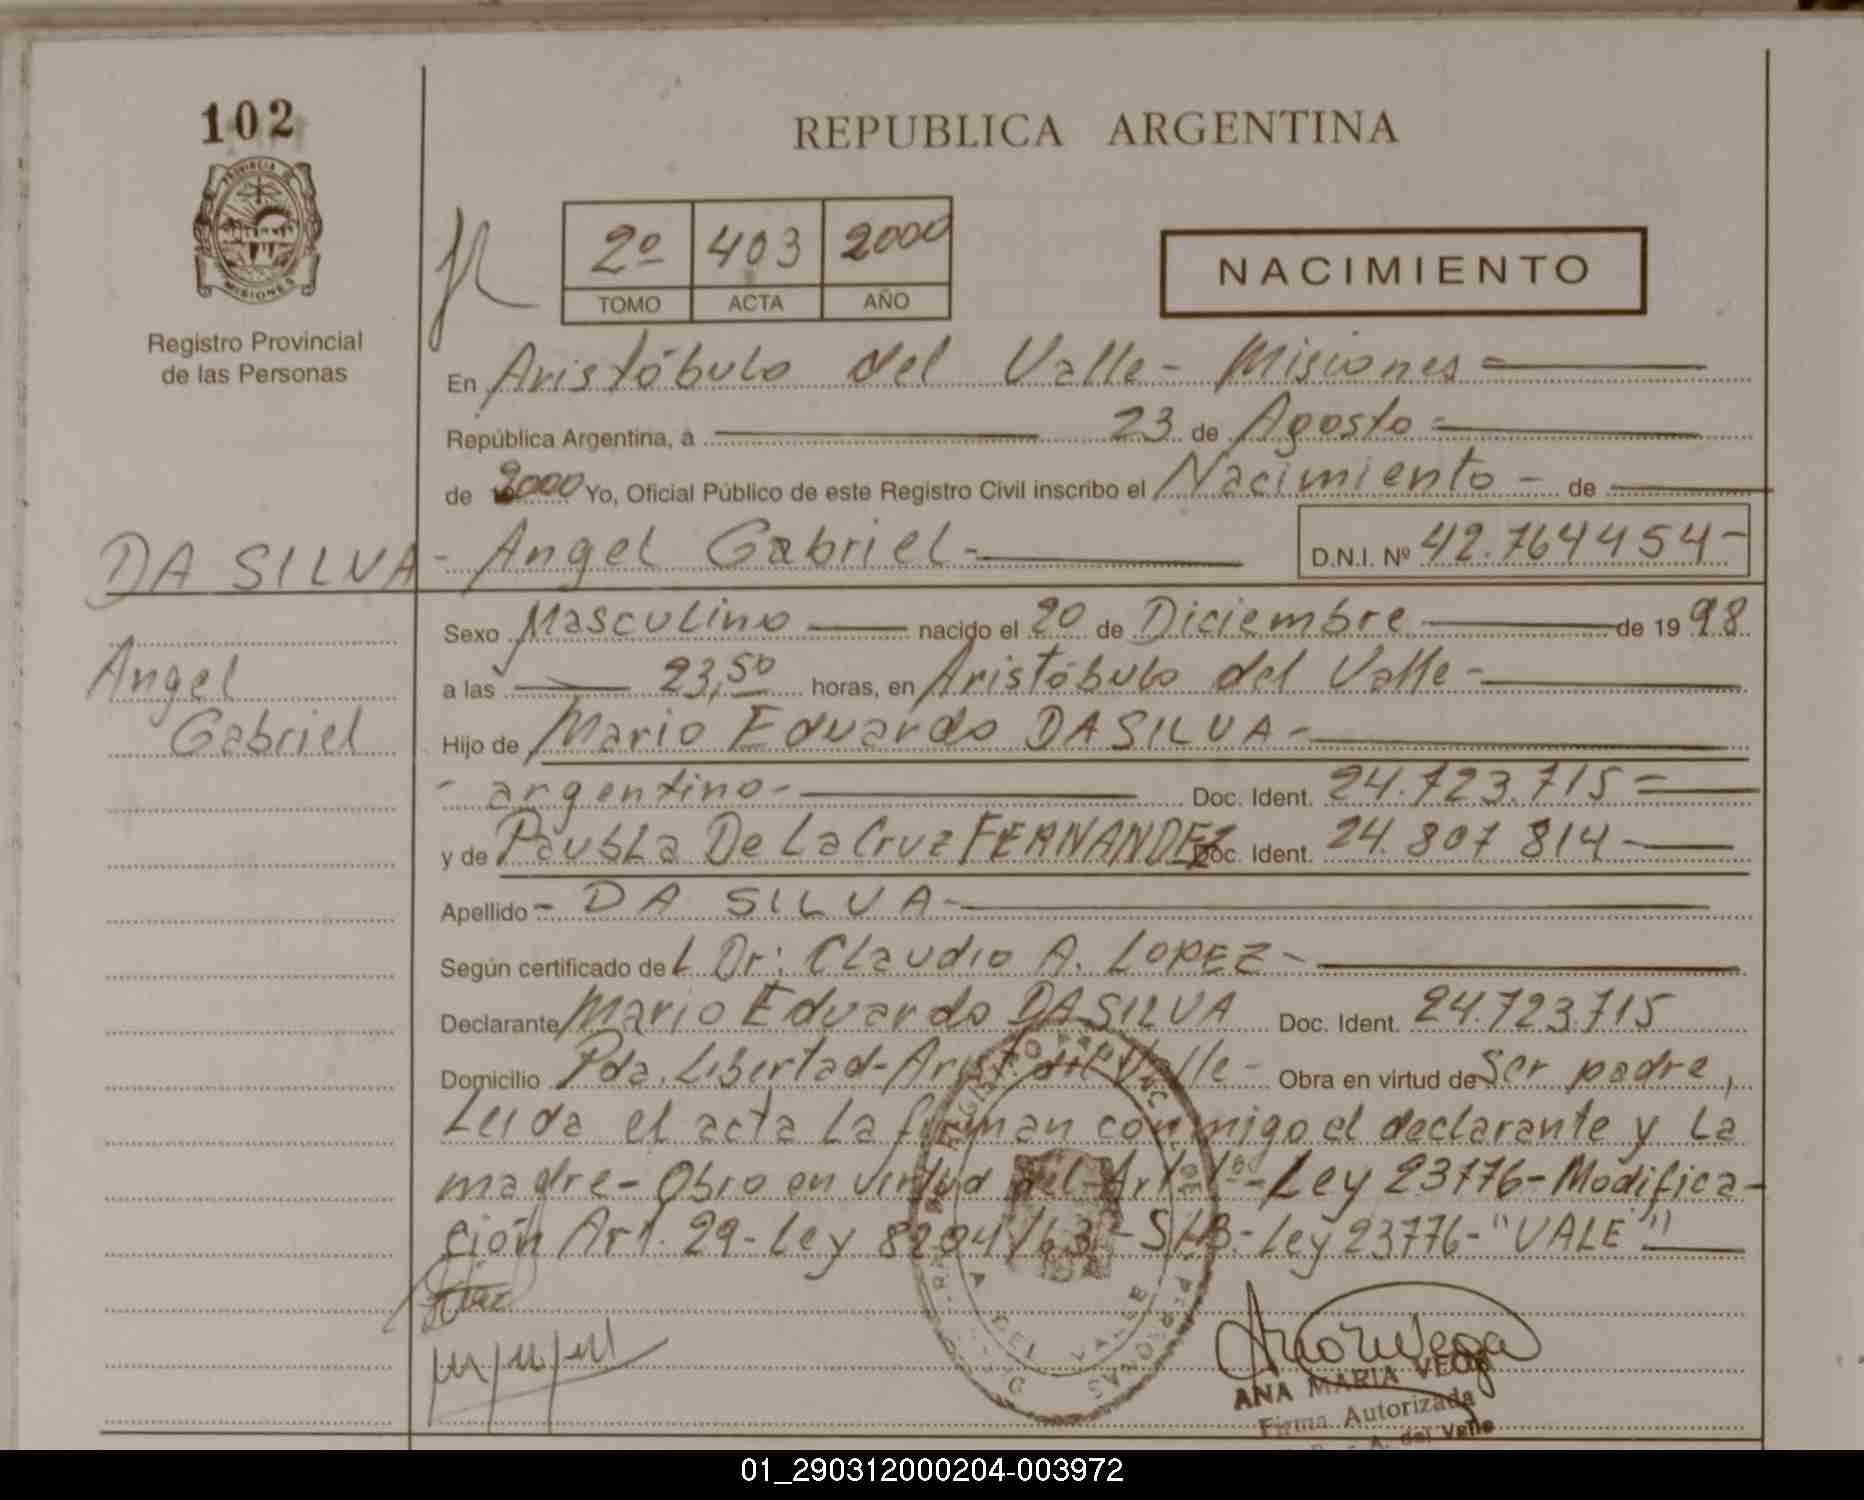 102
REPUBLICA ARGENTINA
PROVINCIA DE MISIONES
Registro Provincial
de las Personas
2º 403 2000
TOMO ACTA AÑO
NACIMIENTO
En Aristóbulo del Valle - Misiones =
República Argentina, a 23 de Agosto =
de 2000 Yo, Oficial Público de este Registro Civil inscribo el Nacimiento - de
DA SILVA - Angel Gabriel -
D.N.I. Nº 42.764454-
Angel
Gabriel
Sexo Masculino nacido el 20 de Diciembre de 1998.
a las 23,50 horas, en Aristóbulo del Valle -
Hijo de Mario Eduardo DA SILVA -
- argentino - Doc. Ident. 24.723.715 =
y de PaubLa De La Cruz FERNANDEZ Doc. Ident. 24.807 814 -
Apellido - DA SILVA -
Según certificado del Dr: Claudio A. LOPEZ -
Declarante Mario Eduardo DA SILVA Doc. Ident. 24.723.715
Domicilio Pda. Libertad - Arist del Valle - Obra en virtud de Ser padre,
Leida el acta la firman conmigo el declarante y la
madre - Obro en virtud del Art 1º - Ley 23776 - Modifica-
ción Art. 29 - Ley 8204/63 - S/B. - Ley 23776 - "VALE"
ANA MARIA VEGA
Firma Autorizada
A. del Valle
01_290312000204-003972